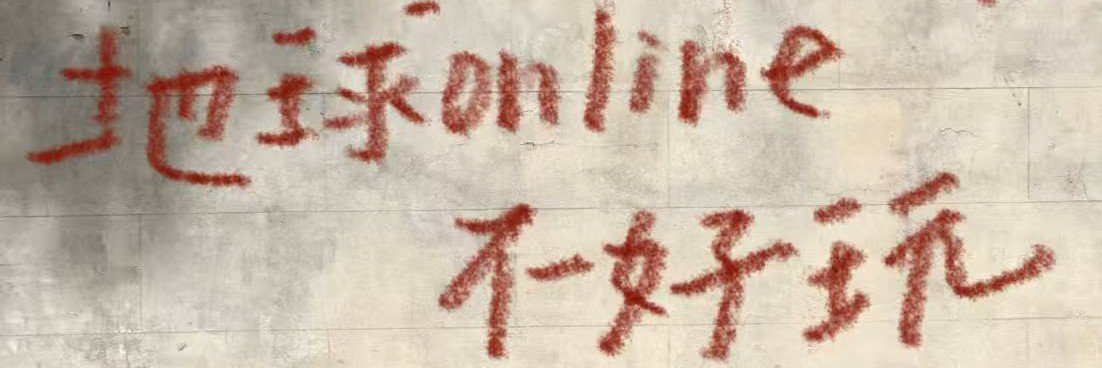 地球online
不好玩